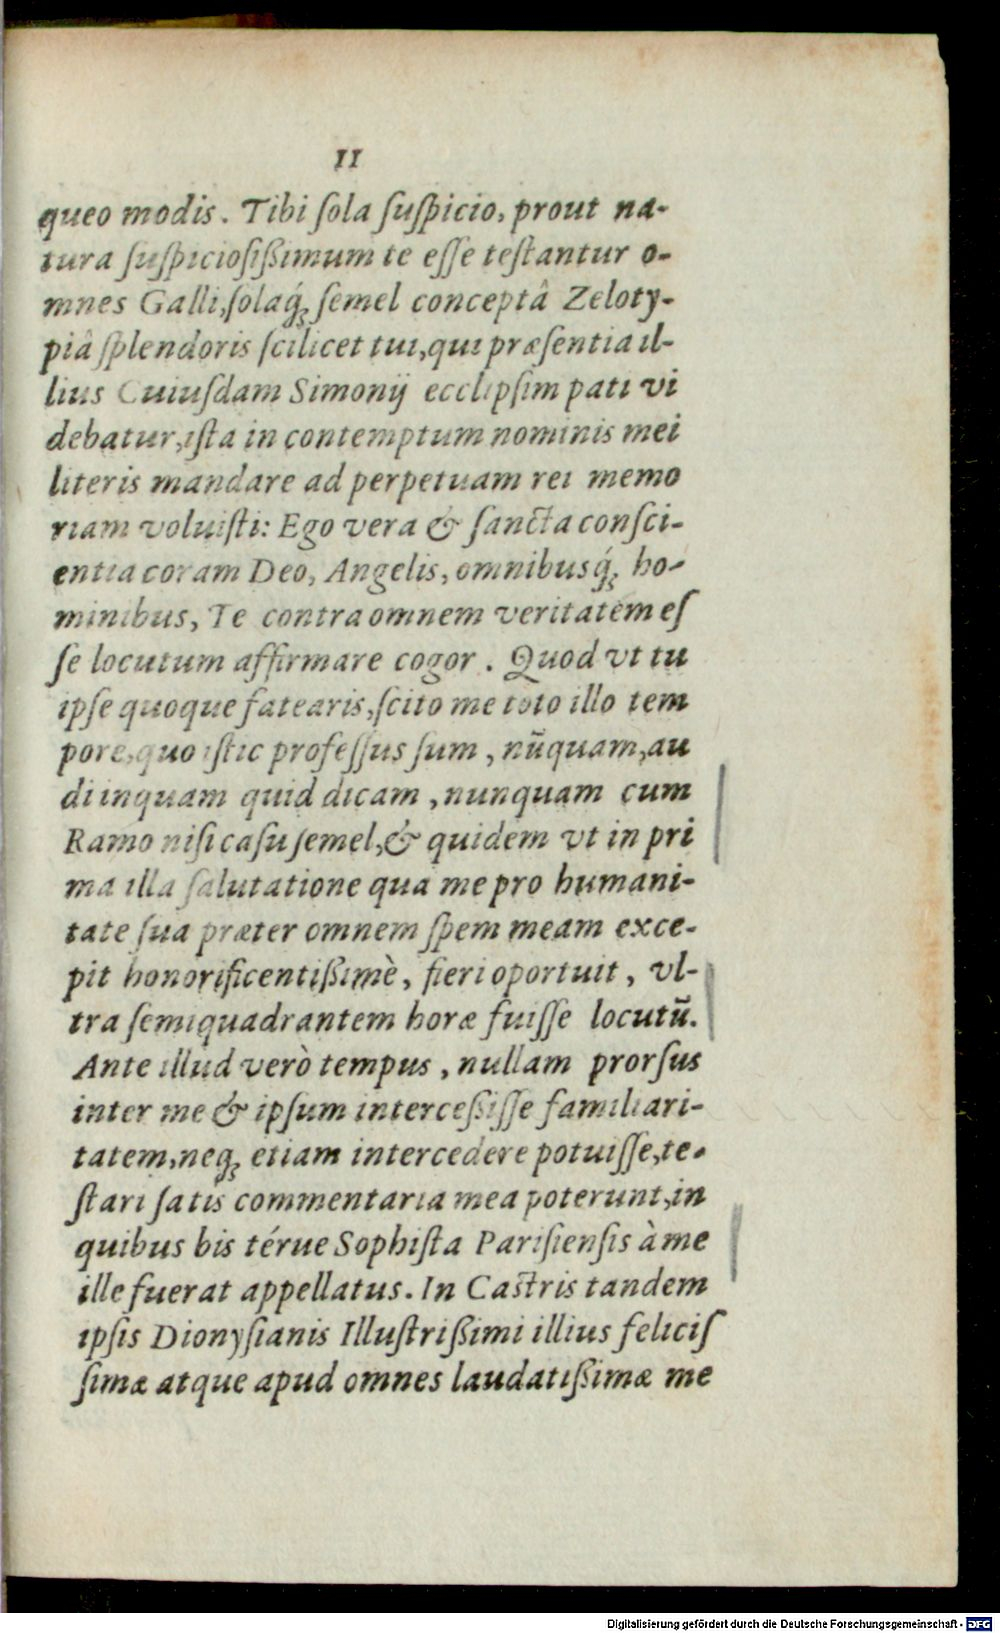 11
queo modis. Tibi ſola ſuſpicio, prout na-
tura ſuſpicioſiſsimum te eſſe teſtantur o-
mnes Galli, ſolaq́; ſemel conceptâ Zeloty-
piâ ſplendoris ſcilicet tui, qui præſentia il-
lius Cuiuſdam Simonij ecclipſim pati vi
debatur, iſta in contemptum nominis mei
literis mandare ad perpetuam rei memo
riam voluiſti: Ego vera & ſancta conſci-
entia coram Deo, Angelis, omnibusq́; ho-
minibus, Te contra omnem veritatem eſ
ſe locutum affirmare cogor. Quod vt tu
ipſe quoque fatearis, ſcito me toto illo tem
pore, quo iſtic profeſſus ſum, nūquam, au
di inquam quid dicam, nunquam cum
Ramo niſi caſu ſemel, & quidem vt in pri
ma illa ſalutatione qua me pro humani-
tate ſua præter omnem ſpem meam exce-
pit honorificentiſsimè, fieri oportuit, vl-
tra ſemiquadrantem horæ fuiſſe locutū.
Ante illud verò tempus, nullam prorſus
inter me & ipſum interceſsiſſe familiari-
tatem, neq; etiam intercedere potuiſſe, te-
ſtari ſatis commentaria mea poterunt, in
quibus bis térue Sophiſta Pariſienſis à me
ille fuerat appellatus. In Caſtris tandem
ipſis Dionyſianis Illuſtriſsimi illius feliciſ
ſimæ atque apud omnes laudatiſsimæ me
Digitalisierung gefördert durch die Deutsche Forschungsgemeinschaft - DFG